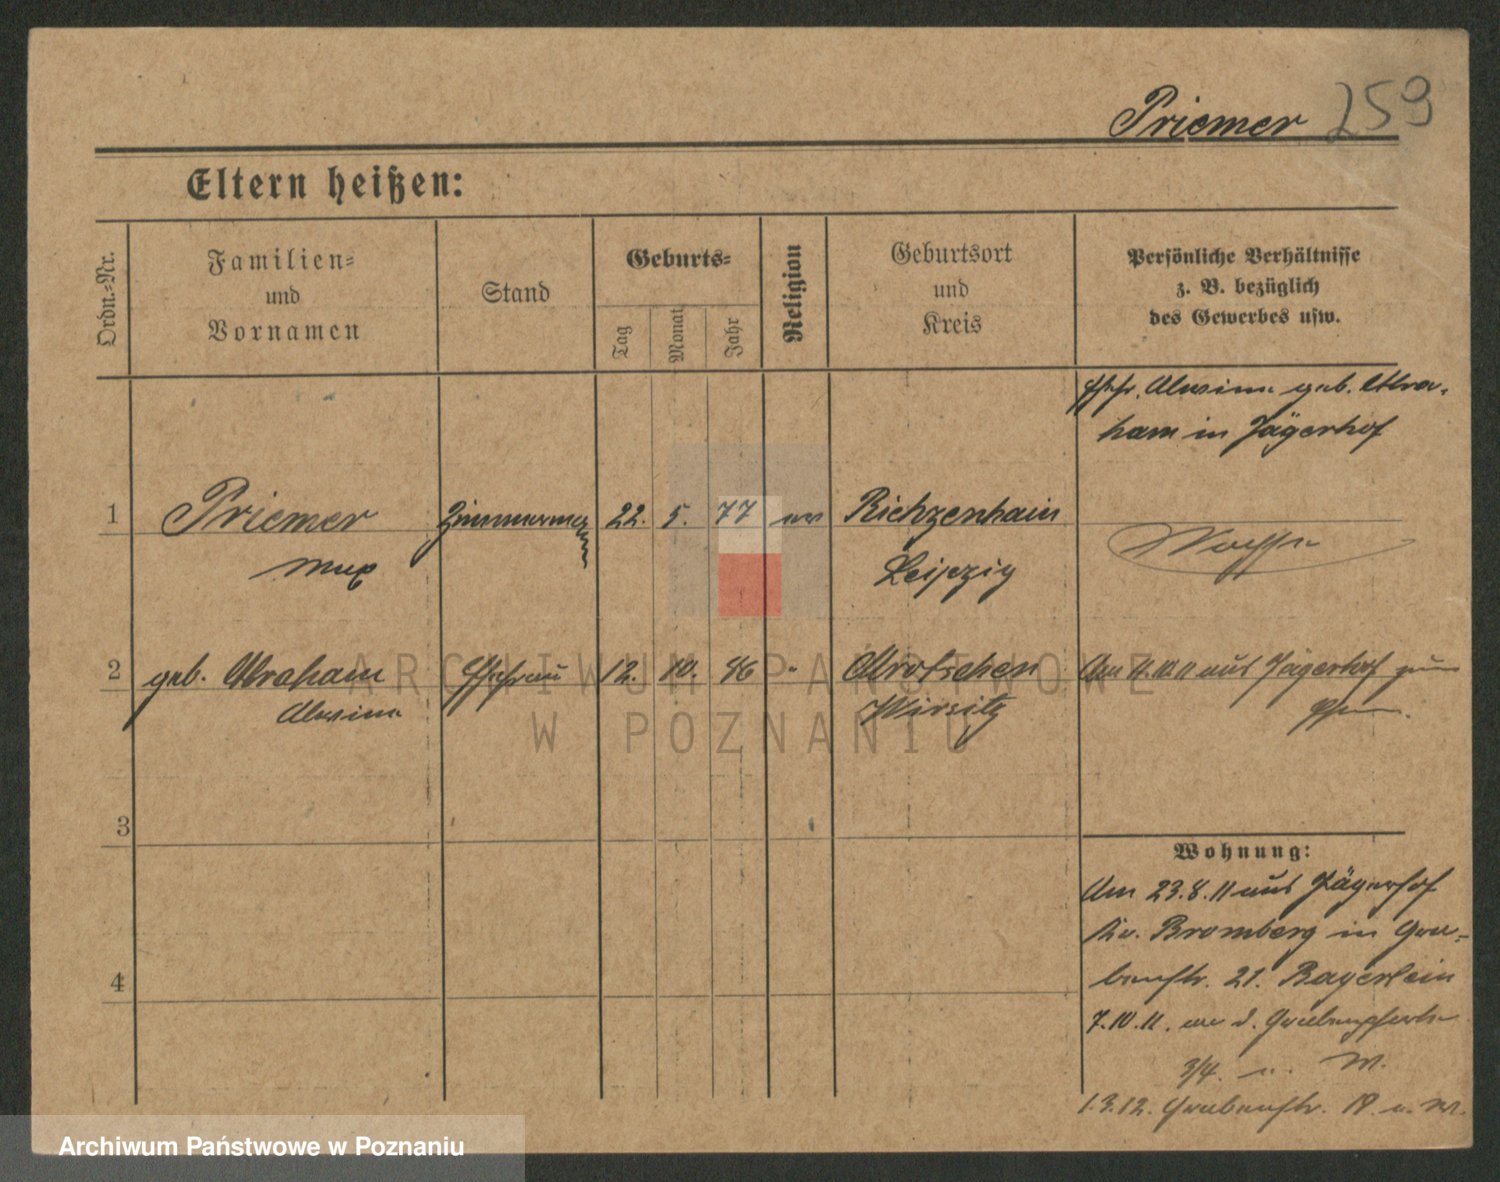 Priemer 259
Eltern heißen:
Ordn.-Nr.
Familien-
und
Vornamen
Stand
Geburts-
Tag
Monat
Jahr
Religion
Geburtsort
und
Kreis
Persönliche Verhältnisse
z. B. bezüglich
des Gewerbes usw.
Ehefr. Alwine geb. Abra-
ham in Jägerhof
1 Priemer Zimmermann 22. 5. 77 ev Richzenhain
Max Leipzig
2 geb. Abraham Ehefrau 12. 10. 86 " Mrotschen Am 11.10.11 aus Jägerhof zum
Alwine Wirsitz
3
4
Wohnung:
Am 23.8.11 aus Jägerhof
Kr. Bromberg in Gra-
benstr. 21. Bagerlein
7.10.11.
3/4. M.
1.3.12. Grabenstr. 18 M.
ARCHIWUM PAŃSTWOWE
W POZNANIU
Archiwum Państwowe w Poznaniu